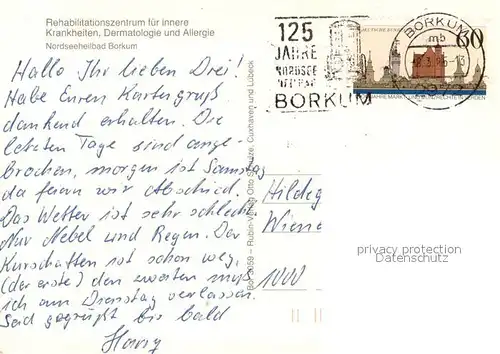 Rehabilitationszentrum für innere
Krankheiten, Dermatologie und Allergie
Nordseeheilbad Borkum
Hallo Ihr lieben Drei!
Habe Euren Kartengruß
dankend erhalten. Die
letzten Tage sind ange-
brochen, morgen ist Samstag
da feiern wir Abschied.
Das Wetter ist sehr schlecht
Nur Nebel und Regen. Der
Kurschatten ist schon weg,
(der erste) den zweiten muß
ich am Dienstag verlassen.
Seid gegrüßt bis bald
125
JAHRE
NORDSEE
BORKUM
BORKUM
mb
60
Rubin-Verlag Otto Schulze, Cuxhaven und Lübeck
Hildeg
Wiene
1000
privacy protection
Datenschutz